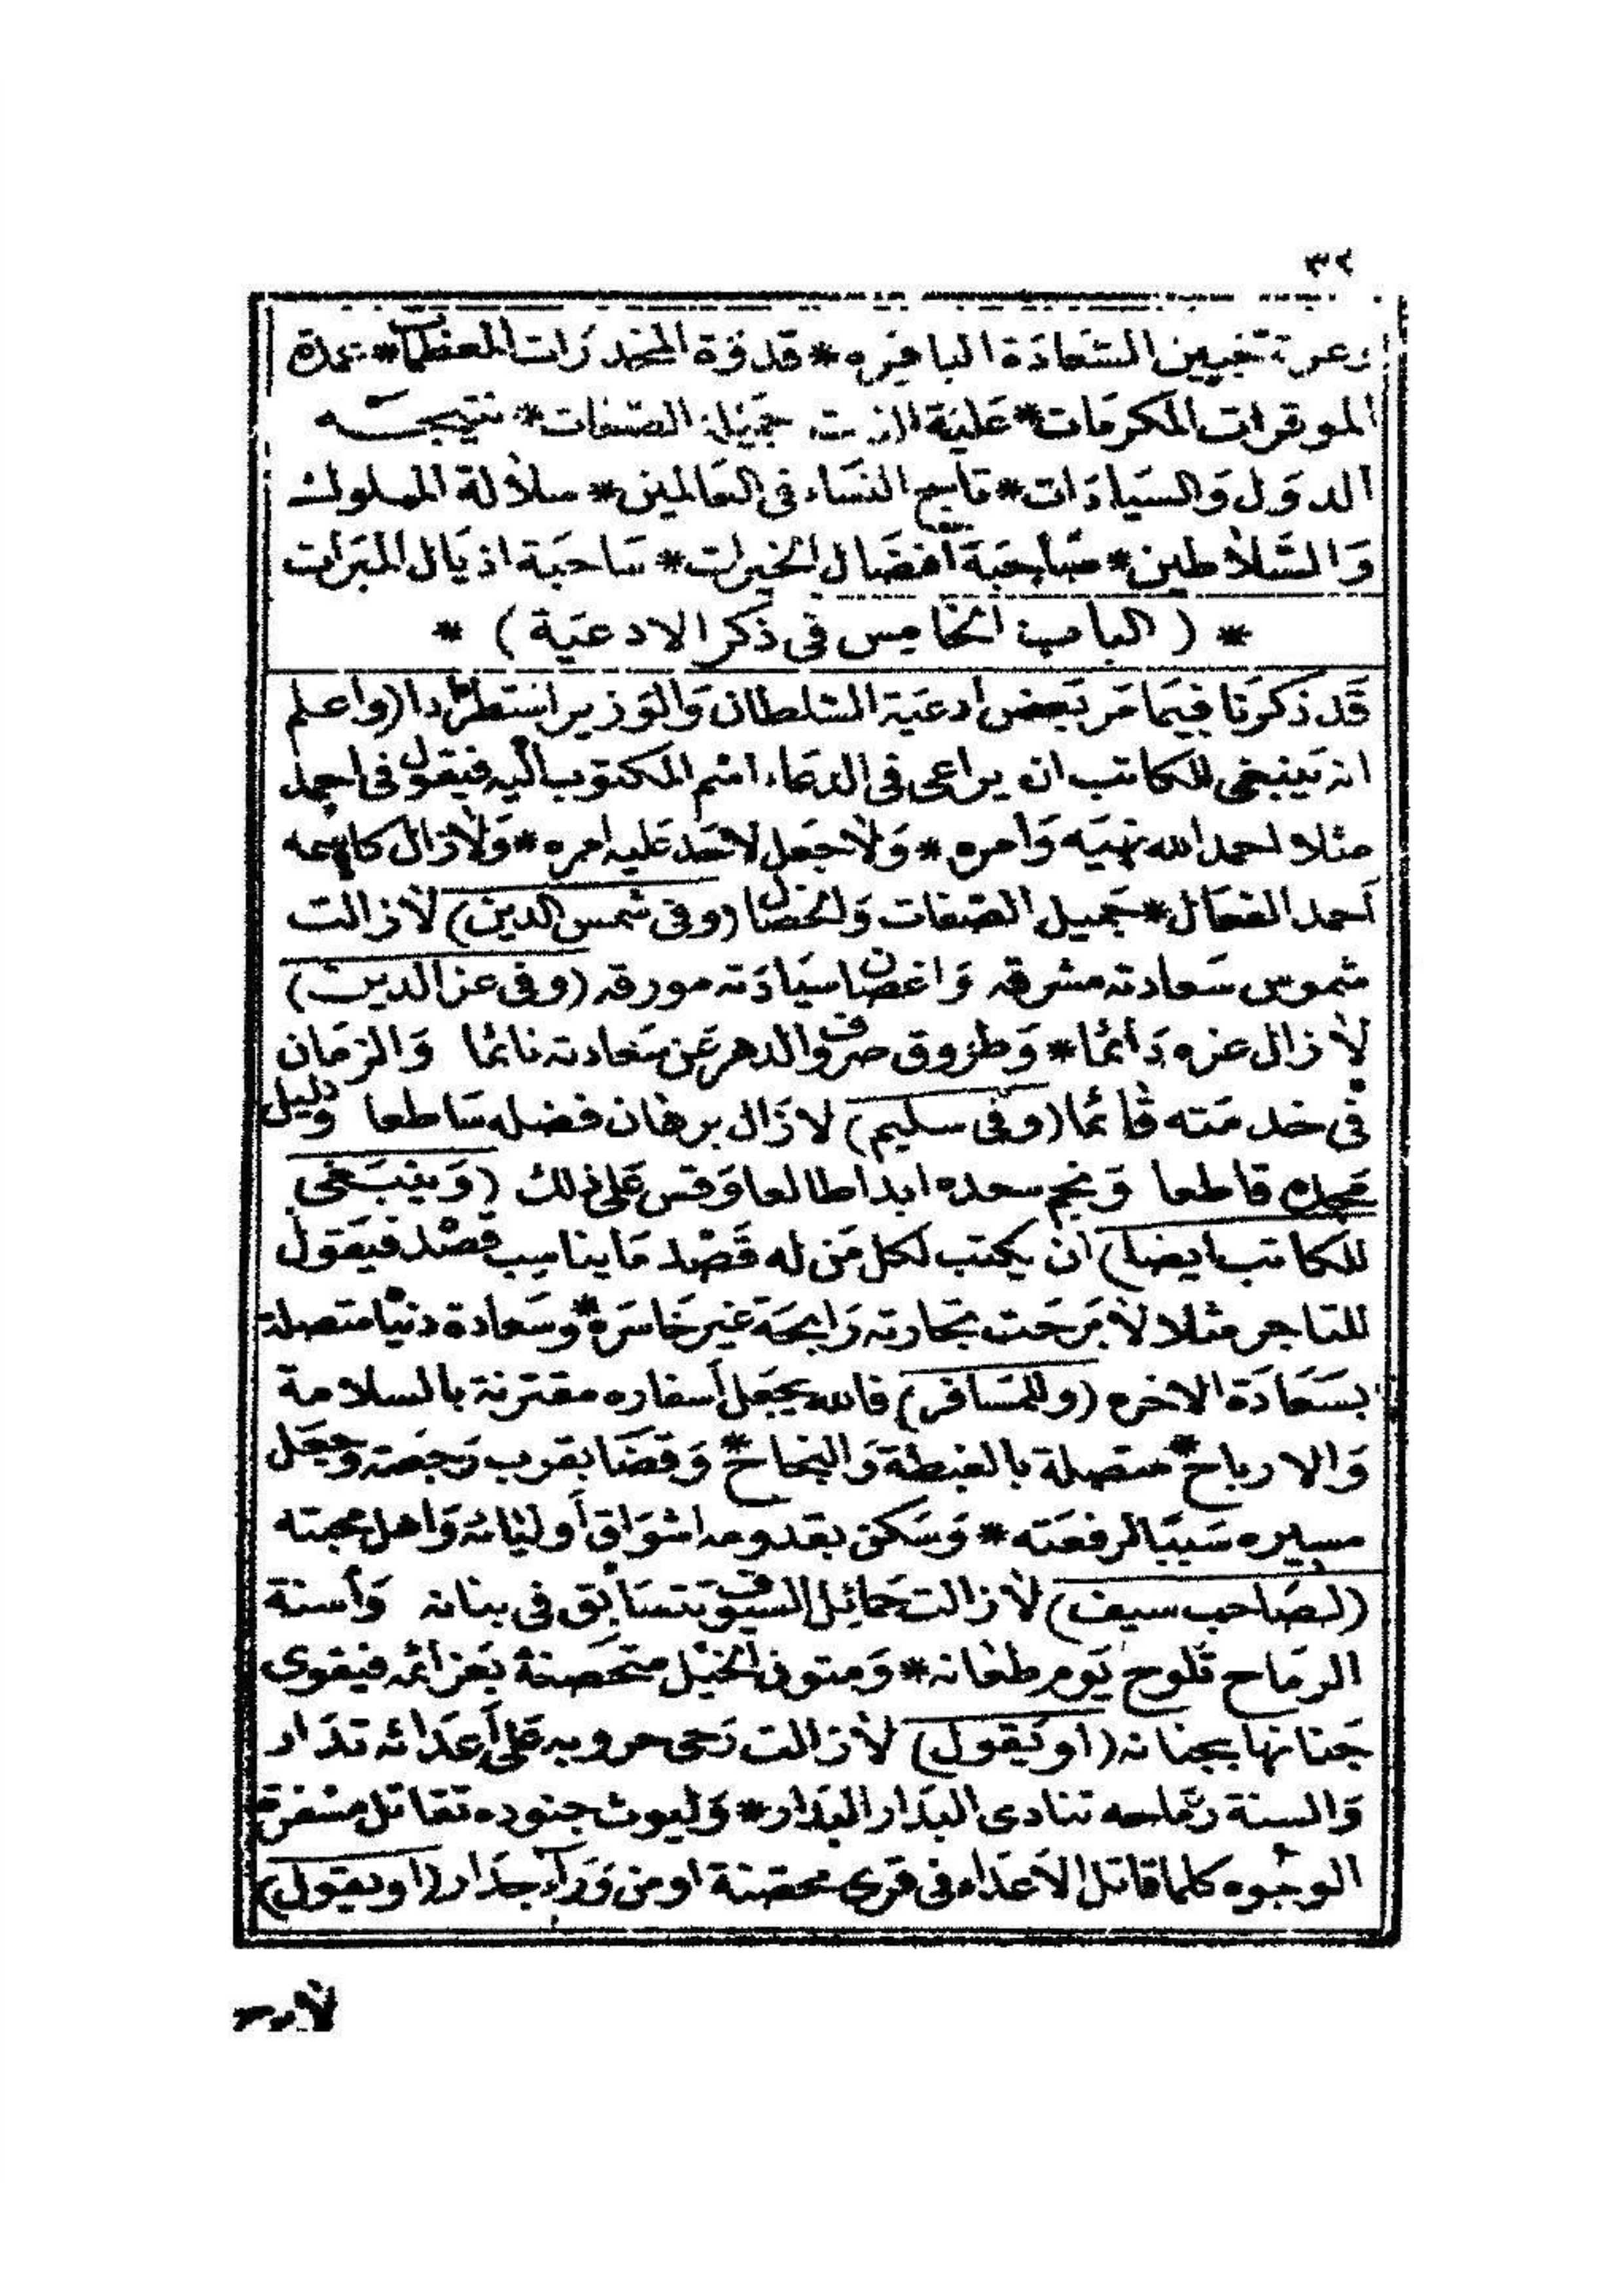 ٣٢
وغرة جبين السَّعَادَة الباهِره * قدوَة المخدرَات المعظمات * عمدة
الموقرات المكرمَات * عَلية الذات جَميلة الصّفات * نتيجــه
الدوَل وَالسّيادَات * تاج النسَاء فى العَالمين * سلالة الملوك
وَالسَّلاطين * صَاحِبَة أفضَال الخيرات * سَاحبَة اذيَال المبرَات
* ( الباب الخامِس فى ذكر الادعيَة ) *
قَد ذكرنَا فِيمَا مَر بَعض أدعيَة السّلطان وَالوَزير استطرَادا (واعلم
انه يَنبغى للكاتب ان يراعى فى الدعَاء اسْم المكتوب اليه فيقول فى احمد
مثلا احمد الله نهيَه وَأمره * وَلا جعَل لاحَد عَليه امره * وَلا زال كاسمه
أحمد الفعَال * جَميل الصّفات وَالخصَال (وفى شمس الدين) لا زالت
شموس سَعادته مشرقه وَاغصَان سيَادَته مورقه (وفى عز الدين)
لا زال عزه دَائمًا * وَطرُوق صروف الدهر عَن سَعادته نائمًا وَالزمَان
فى خدمَته قائمًا (وفى سليم) لا زَال برهَان فضله سَاطعا وَدليل
مجده قاطعا وَنجم سعده ابدا طالعا وَقس عَلى ذلك (وَينبَغى
للكاتب ايضا) ان يكتب لكل مَن له قَصْد مَا يناسِب قصْده فيقول
للتاجر مثلا لا بَرحَت تجارته رَابحَة غير خَاسَرة * وسَعادة دنيَا متصلة
بسَعَادَة الاخره (وللمسَافر) فالله يجعَل أسفاره مقترنة بالسلامة
وَالارباح * متصلة بالغبطة وَالنجاح * وَقضَا بقرب رَجعَته وجعَل
مسيره سَببًا لرفعَته * وَسَكن بقدومه اشوَاق أوليائه وَاهل محبته
(لصَاحب سيف) لا زالت حَمائل السيوف تتسَابق فى بنانه وَأسنة
الرمَاح تلوح يَوم طعَانه * وَمتون الخيْل متحَصنة بعَزائمه فيقوى
جَنانها بجنانه (او يَقول) لا زالت رَحى حروبه عَلى أعدَائه تدَار
وَالسنة رمَاحه تنادى البدَار البدَار * وَليوث جنوده تقاتل مسفرة
الوجُوه كلما قاتل الاعدَاء فى قرى محصّنة او من وَرَاء جدَار (او يقول)